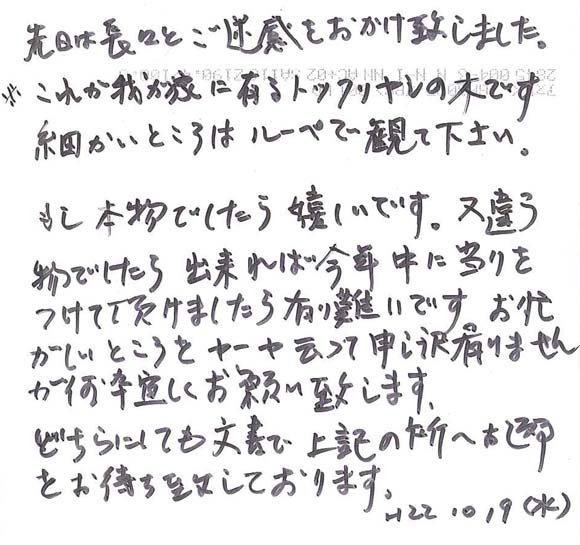 先日は長々とご迷惑をおかけ致しました。
※これが我が家に有るトックリヤシの木です
細かいところはルーペで観て下さい。
もし本物でしたら嬉しいです。又違う
物でしたら出来れば今年中に当りを
つけて頂けましたら有り難いです お忙
がしいところをヤーヤ云って申し訳有りません
が何卒宜しくお願い致します。
どちらにしても文書で上記の所へお返事
をお待ち致しております。
H22 10 19 (水)